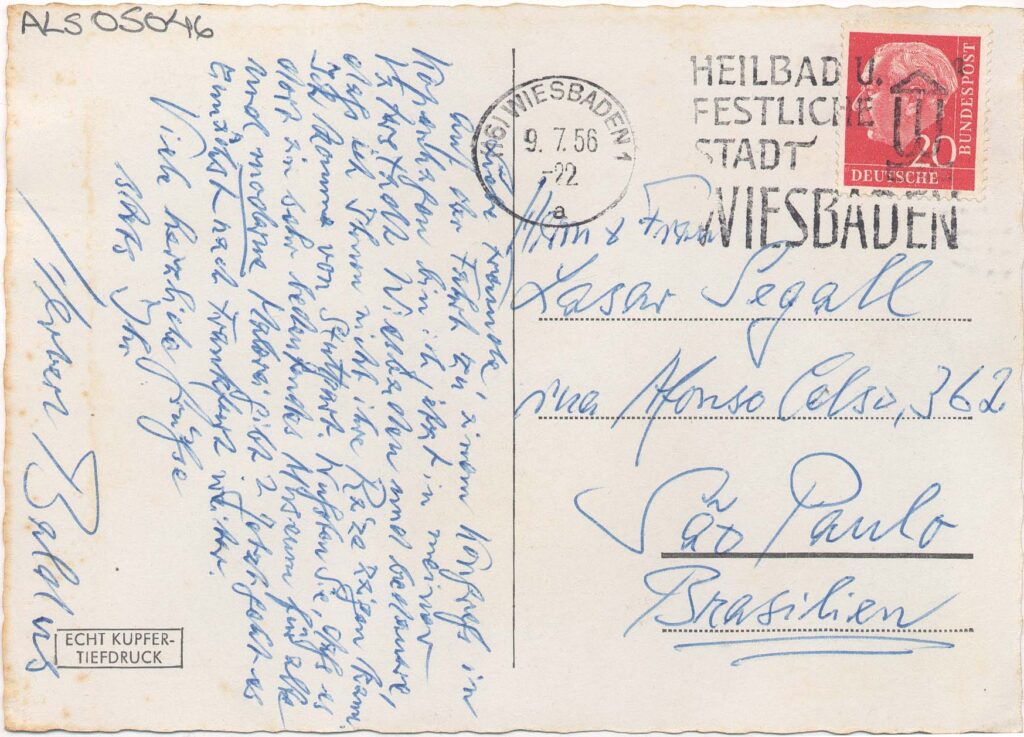 ALS 05046
Liebe Freunde,
auf der Fahrt zu einem Kongress in
Kopenhagen bin ich jetzt in meiner
Vaterstadt Wiesbaden und bedaure,
daß ich Ihnen nicht ihre Reize zeigen kann.
Ich komme von Stuttgart. Wußten Sie, daß es
dort ein sehr bedeutendes Museum für alte
und moderne Malerei gibt? Jetzt geht es
zunächst nach Frankfurt weiter.
Viele herzliche Grüße
stets Ihr
Herbert Baldus
ECHT KUPFER-
TIEFDRUCK
(16) WIESBADEN 1
9. 7. 56
-22
a
HEILBAD U.
FESTLICHE
STADT
WIESBADEN
20
DEUTSCHE
BUNDESPOST
Herrn & Frau
Lasar Segall
rua Afonso Celso, 362
São Paulo
Brasilien